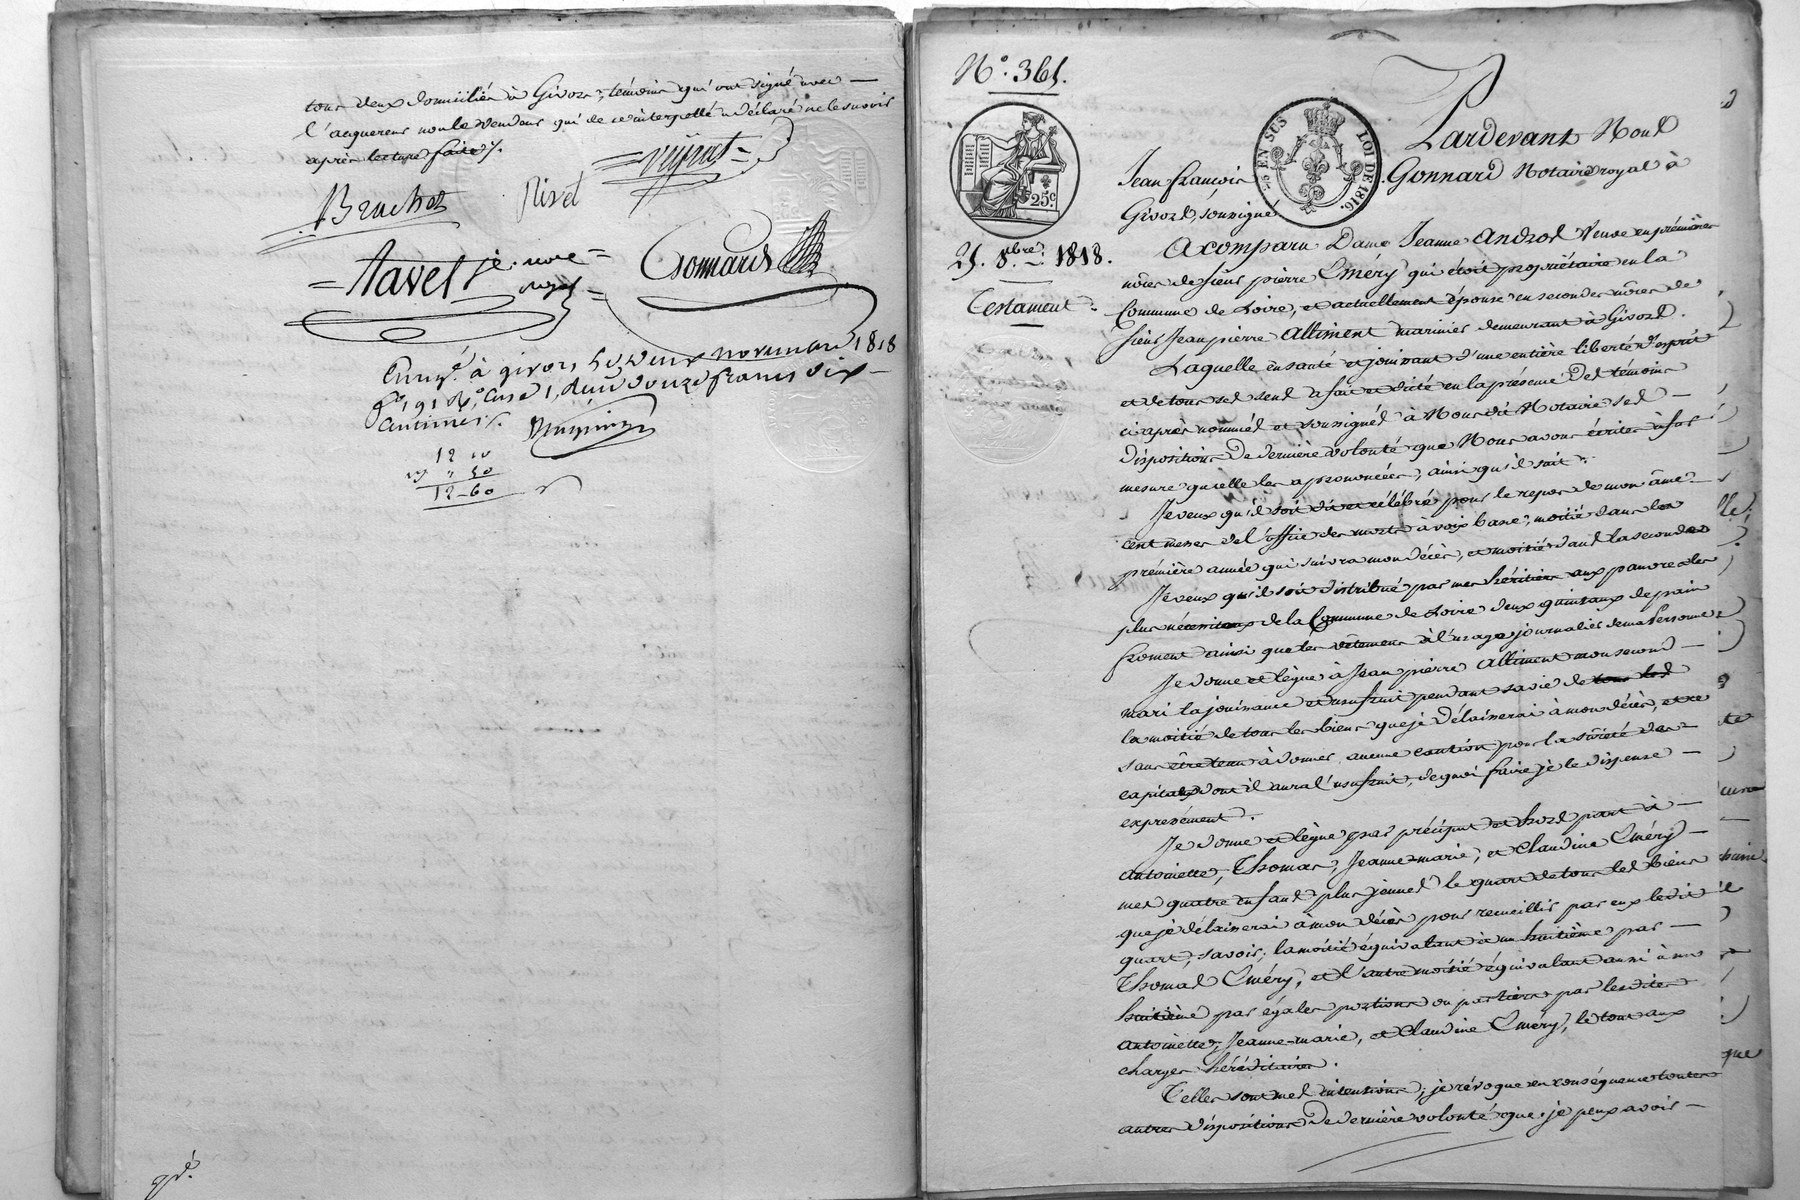 tous deux domiciliés à Givors, témoins qui ont signé avec
l'acquereur non le vendeur qui de ce interpellé a déclaré ne le savoir
après lecture faite /.
Bruchet Rivel
Favel Gonnard
Enreg.é à givors le deux novembre 1818
f.o 191 R.o Case 1, Reçu douze francs dix
Centimes /.
12 10
" 50
12-60
N.o 365.
25 EN SUS LOI DE 1816.
25.c
25. 8bre 1818.
Testament
Pardevant Nous
Jean françois Gonnard Notaire royal à
Givors, soussigné
A comparu Dame Jeanne Andros Veuve en prémières
nôces de sieur pierre Eméry qui étoit propriétaire en la
Commune de Loire, et actuellement épouse en secondes nôces de
sieur Jean pierre Altiment marinier demeurant à Givors.
Laquelle en santé et jouissant d'une entière liberté d'esprit
et de tous ses sens a fait et dicté en la présence des témoins
ci après nommés et soussignés à Nous dit Notaire ses
dispositions de dernière volonté que Nous avons écrites à fur
mesure qu'elle les a prononcées, ainsi qu'il suit.
Je veux qu'il soit dit et célébré pour le repos de mon âme
cent messes de l'office des morts à voix basse, moitié dans la
première année qui suivra mon décès, et moitié dans la seconde
Je veux qu'il soit distribué par mes héritiers aux pauvres les
plus nécessiteux de la Commune de Loire deux quintaux de pain
froment ainsi que les vêtemens à l'usage journalier de ma Personne
Je donne et lègue à Jean pierre Altiment mon second
mari la jouissance et usufruit pendant sa vie de tous les
la moitié de tous les biens que je délaisserai à mon décès, et ce
sans être tenu à donner aucune caution pour la sûreté des
capitaux dont il aura l'usufruit, de quoi faire je le dispense
expressément.
Je donne et lègue par préciput et hors part à
Antoinette, Thomas, Jeanne-marie, et Claudine Eméry
mes quatre enfans plus jeunes le quart de tous les biens
que je délaisserai à mon décès pour recueillir par eux ledit
quart, savoir; la moitié équivalant à un huitième par
Thomas Eméry, et l'autre moitié équivalant aussi à un
huitième par égales portions ou par tiers par lesdites
Antoinette, Jeanne-marie, et Claudine Eméry, le tout aux
charges héréditaires.
Telles sont mes intentions; je révoque en conséquence toutes
autres dispositions de dernière volonté que je peux avoir